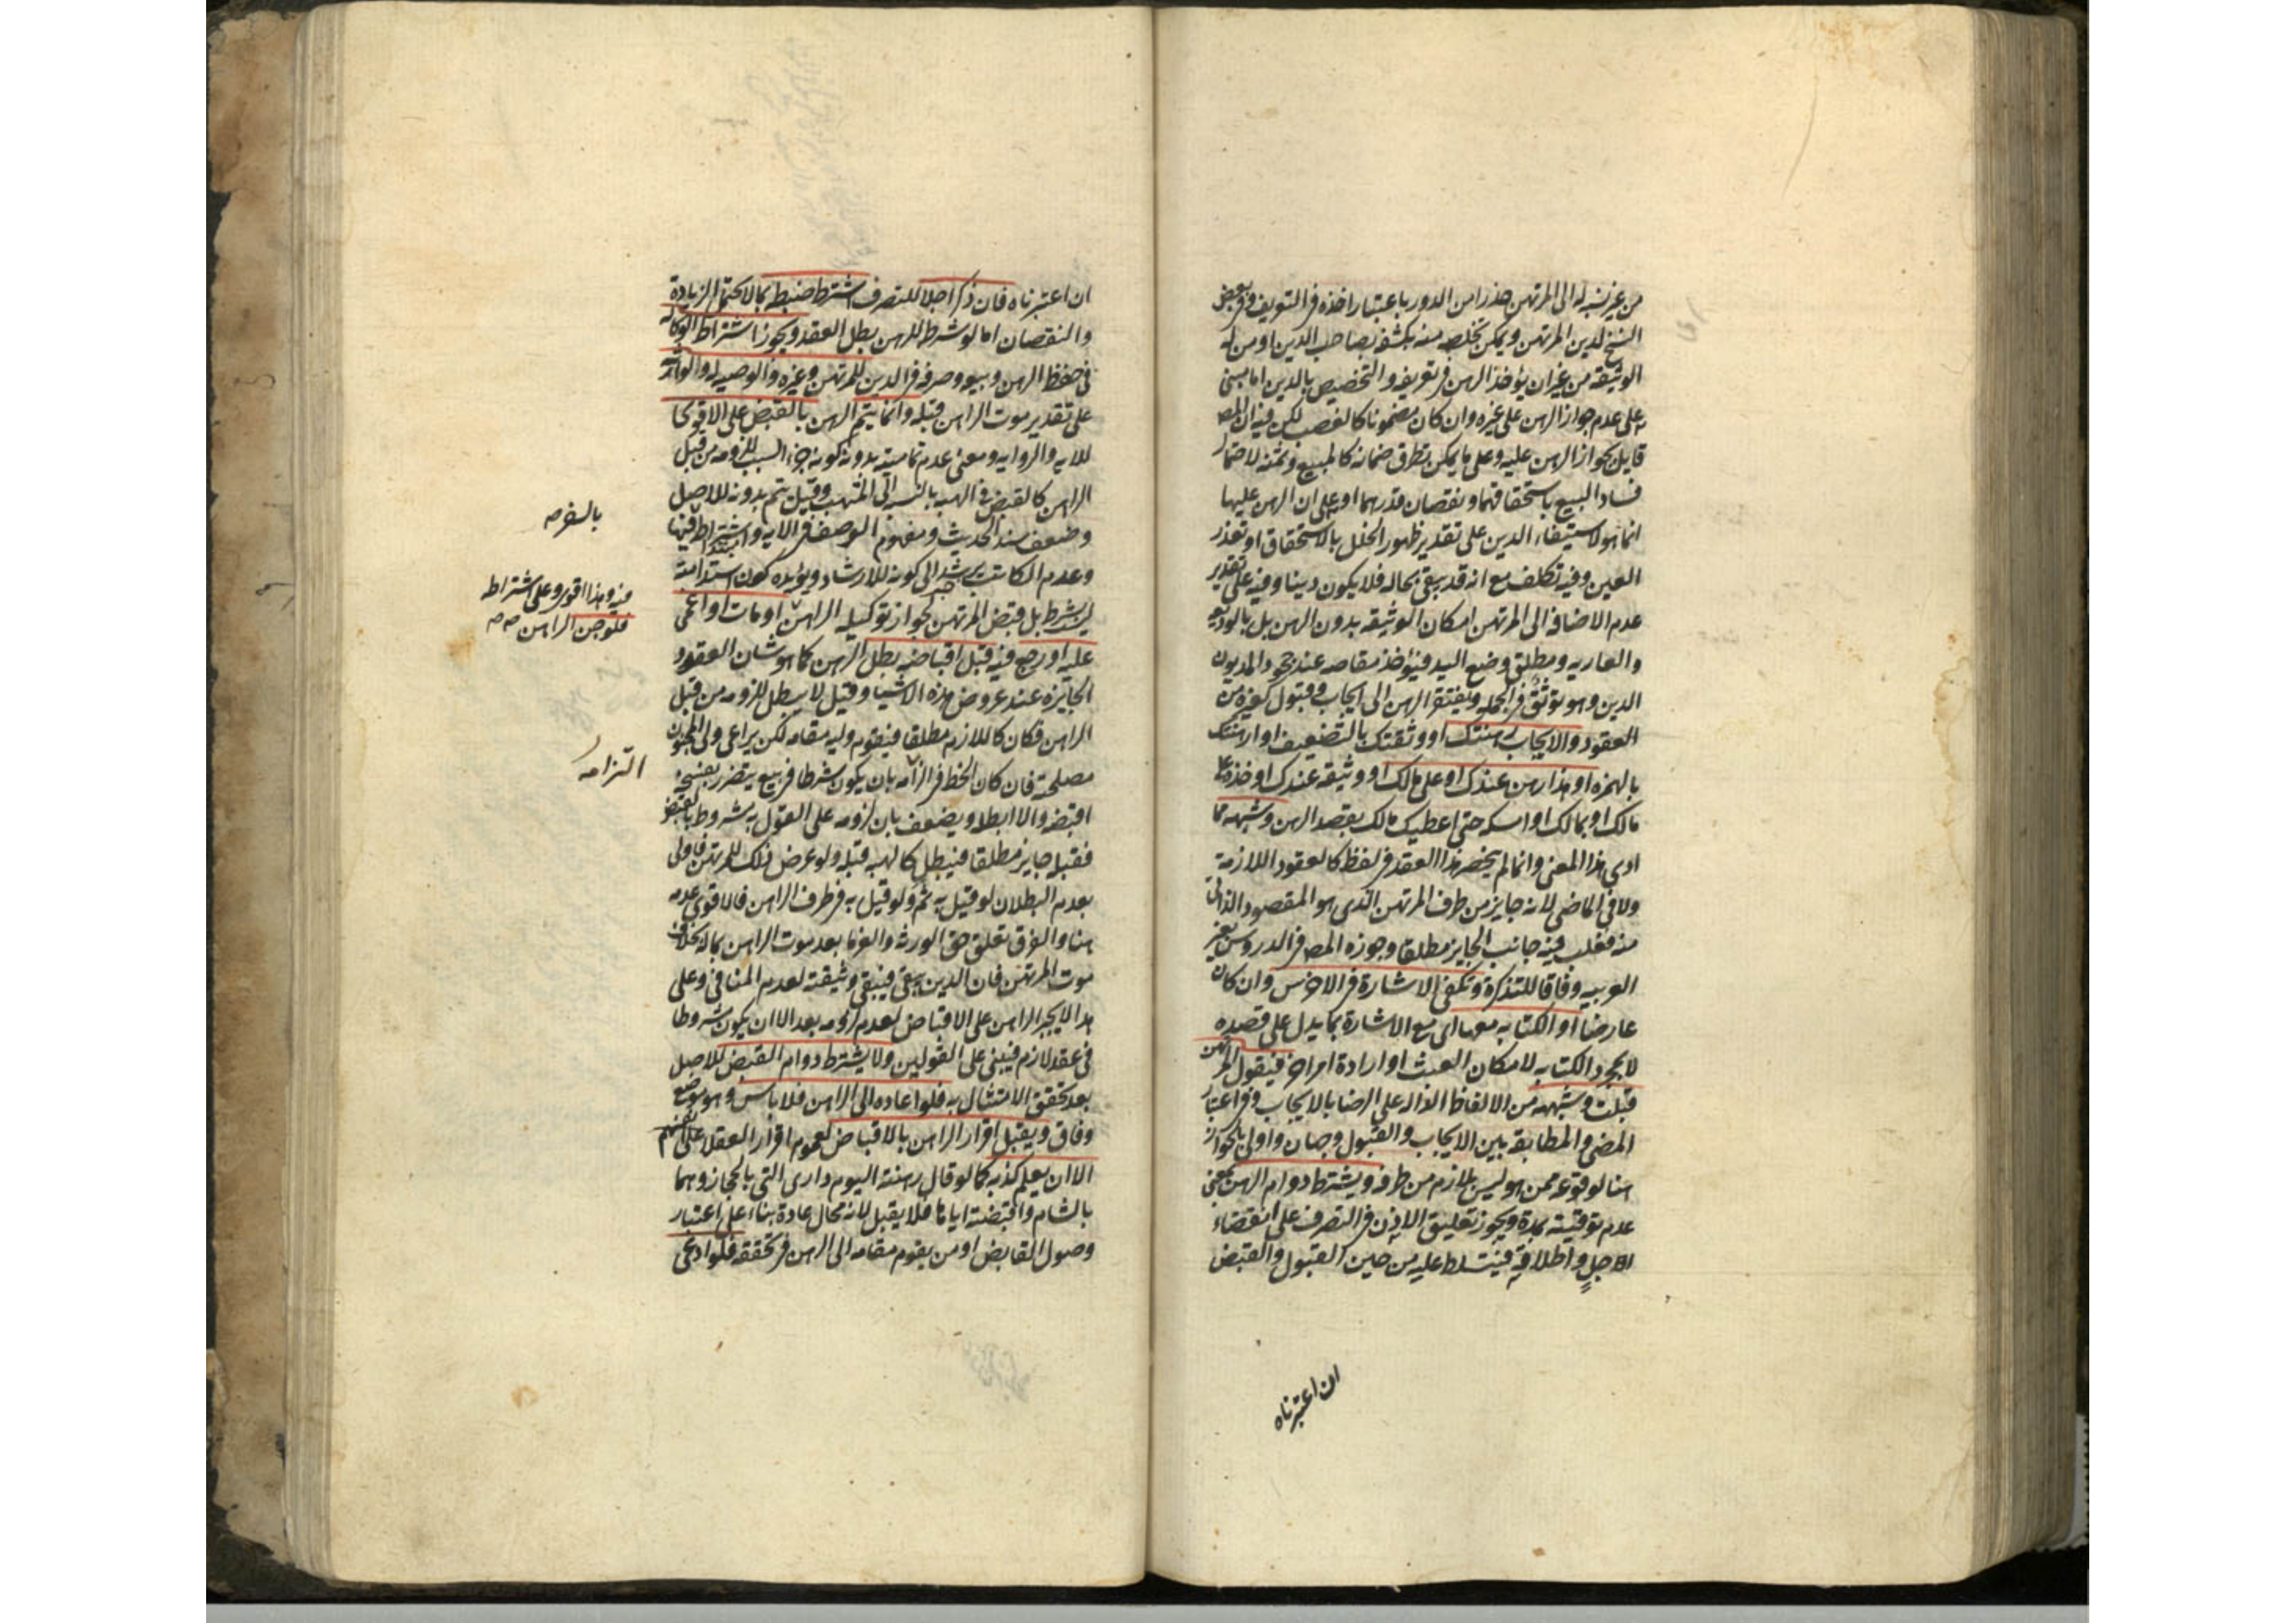 من غير نسبة له الى المرتهن حذرا من الدور باعتبار اخذه في التعريف وفي بعض
النسخ لدين المرتهن ويمكن تخلصه منه بكشفه بصاحب الدين او من له
الوثيقه من غير ان يؤخذ الرهن في تعريفه والتخصيص بالدين اما مبنى
على عدم جواز الرهن على غيره وان كان مضمونا كالغصب لكن فيه ان المص
قايل بجواز الرهن عليه وعلى ما يمكن تطرق ضمانه كالمبيع وثمنه لاحتمال
فساد البيع باستحقاقهما ونقصان قدرهما او على ان الرهن عليها
انما هو لاستيفاء الدين على تقدير ظهور الخلل بالاستحقاق او تعذر
العين وفيه تكلف مع انه قد يبقى بحاله فلا يكون دينا وفيه على تقدير
عدم الاضافه الى المرتهن امكان الوثيقه بدون الرهن بل بالوديعه
والعاريه ومطلق وضع اليد فيؤخذ مقاصه عند جحود المديون
الدين وهو توثق في الجمله ويفتقر الرهن الى ايجاب وقبول كغيره من
العقود والايجاب رهنتك او وثقتك بالتضعيف او ارهنتك
بالهمزه او هذا رهن عندك او على مالك او وثيقه عندك او خذه على
مالك او بمالك او امسكه حتى اعطيك مالك بقصد الرهن وشبهه مما
ادى هذا المعنى وانما لم يخصر هذا العقد في لفظ كالعقود اللازمة
ولا في الماضى لانه جايز من طرف المرتهن الذى هو المقصود الذاتى
منه فغلب فيه جانب الجايز مطلقا وجوزه المص في الدروس بغير
العربيه وفاقا للتذكرة وتكفى الاشارة في الاخرس وان كان
عارضا او الكتابه معها اى مع الاشارة بما يدل على قصده
لا بمجرد الكتابه لامكان العبث او ارادة امر اخر فيقول المرتهن
قبلت وشبهه من الالفاظ الداله على الرضا بالايجاب وفي اعتبار
المضى والمطابقه بين الايجاب والقبول وجهان واولى بالجواز
هنا لوقوعه ممن هو ليس بلازم من طرفه ويشترط دوام الرهن بمعنى
عدم توقيته بمدة ويجوز تعليق الاذن في التصرف على انقضاء
الاجل واطلاقه فيتسلط عليه من حين القبول والقبض
ان اعتبرناه
ان اعتبرناه فان ذكر اجلا للتصرف اشترط ضبطه بما لا يحتمل الزيادة
والنقصان اما لو شرط للرهن بطل العقد ويجوز اشتراط الوكاله
فى حفظ الرهن وبيعه وصرفه في الدين للمرتهن وغيره والوصيه له ولوارثه
على تقدير موت الراهن قبله وانما يتم الرهن بالقبض على الاقوى
للايه والروايه ومعنى عدم تماميته بدونه كونه جزء السبب للزومه من قبل
الراهن كالقبض في الهبه بالنسبه الى المتهب وقيل يتم بدونه للاصل
وضعف سند الحديث ومفهوم الوصف في الايه واشتراطه فيها
بالسفر صه
وعدم الكاتب يرشد الى كونه للارشاد ويؤيده كون استدامته
فيه وهذا اقوى وعلى اشتراطه
فلو جن الراهن صه صه
ليس بشرط بل قبض المرتهن لجواز توكيله الراهن او مات او اغمى
عليه او رجع فيه قبل اقباضه بطل الرهن كما هو شان العقود
الجايزه عند عروض هذه الاشيا وقيل لا يبطل للزومه من قبل
الراهن فكان كاللازم مطلقا فيقوم وليه مقامه لكن يراعى ولى المجنون
مصلحته فان كان الحظ في الزامه بان يكون شرطا في بيع يتضرر بفسخه
التزامه
اقبضه والا ابطله ويضعف بان لزومه على القول به مشروط بالقبض
فقبله جايز مطلقا فيبطل كالهبه قبله ولو عرض ذلك للمرتهن فاولى
بعدم البطلان لو قيل به ثم ولو قيل به في طرف الراهن فالاقوى عدمه
هنا والفرق تعلق حق الورثه والغرما بعد موت الراهن بماله بخلاف
موت المرتهن فان الدين يبقى فيبقى وثيقته لعدم المنافى وعلى
هذا لا يجبر الراهن على الاقباض لعدم لزومه بعد الا ان يكون مشروطا
فى عقد لازم فيبنى على القولين ولا يشترط دوام القبض للاصل
بعد تحقق الامتثال به فلو اعاده الى الراهن فلا باس وهو موضع
وفاق ويقبل اقرار الراهن بالاقباض لعموم اقرار العقلا على انفسهم
الا ان يعلم كذبه كما لو قال رهنته اليوم دارى التى بالحجاز وهما
بالشام واقبضته اياها فلا يقبل لانه محال عادة بناء على اعتبار
وصول القابض او من يقوم مقامه الى الرهن في تحققه فلو ادعى